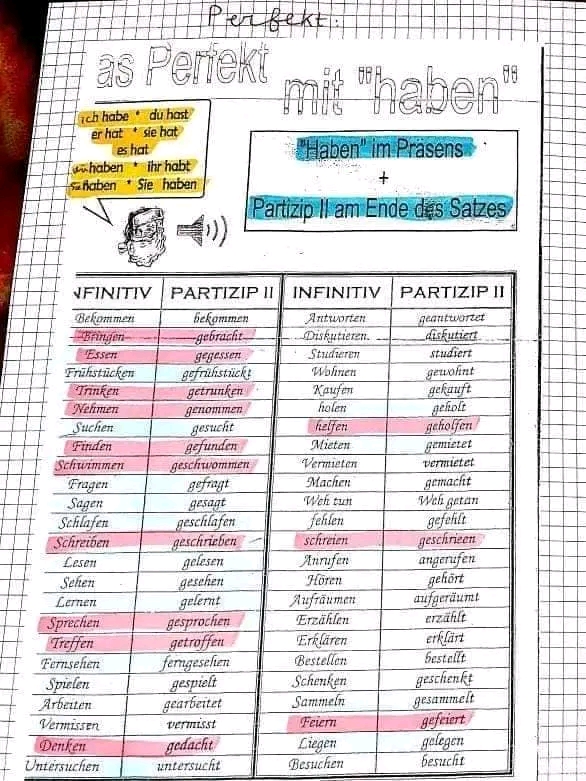 Perfekt:
as Perfekt mit "haben"
ich habe * du hast
er hat * sie hat
es hat
haben * ihr habt
haben * Sie haben
"Haben" im Präsens
+
Partizip II am Ende des Satzes
NFINITIV PARTIZIP II INFINITIV PARTIZIP II
Bekommen bekommen Antworten geantwortet
Bringen gebracht Diskutieren. diskutiert
Essen gegessen Studieren studiert
Frühstücken gefrühstückt Wohnen gewohnt
Trinken getrunken Kaufen gekauft
Nehmen genommen holen geholt
Suchen gesucht helfen geholfen
Finden gefunden Mieten gemietet
Schwimmen geschwommen Vermieten vermietet
Fragen gefragt Machen gemacht
Sagen gesagt Weh tun Weh getan
Schlafen geschlafen fehlen gefehlt
Schreiben geschrieben schreien geschrieen
Lesen gelesen Anrufen angerufen
Sehen gesehen Hören gehört
Lernen gelernt Aufräumen aufgeräumt
Sprechen gesprochen Erzählen erzählt
Treffen getroffen Erklären erklärt
Fernsehen ferngesehen Bestellen bestellt
Spielen gespielt Schenken geschenkt
Arbeiten gearbeitet Sammeln gesammelt
Vermissen vermisst Feiern gefeiert
Denken gedacht Liegen gelegen
Untersuchen untersucht Besuchen besucht